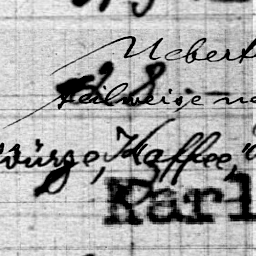 Uebert
28.-
teilweise ne
Würze, Kaffee,
Karl